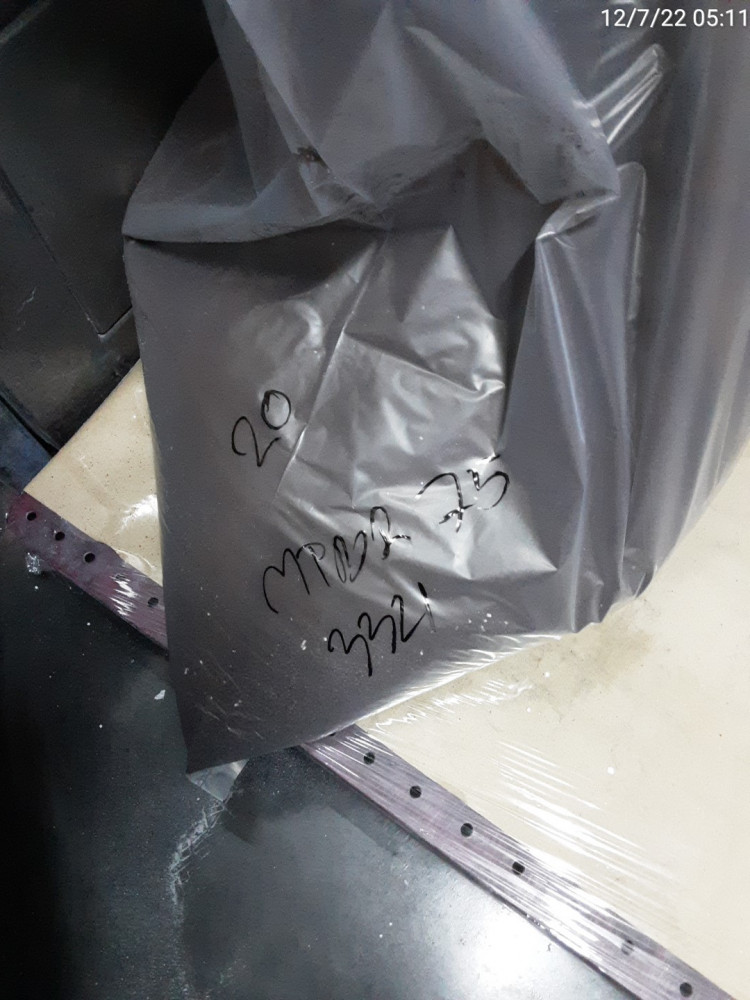 12/7/22 05:11
20
MPBR 75
3321